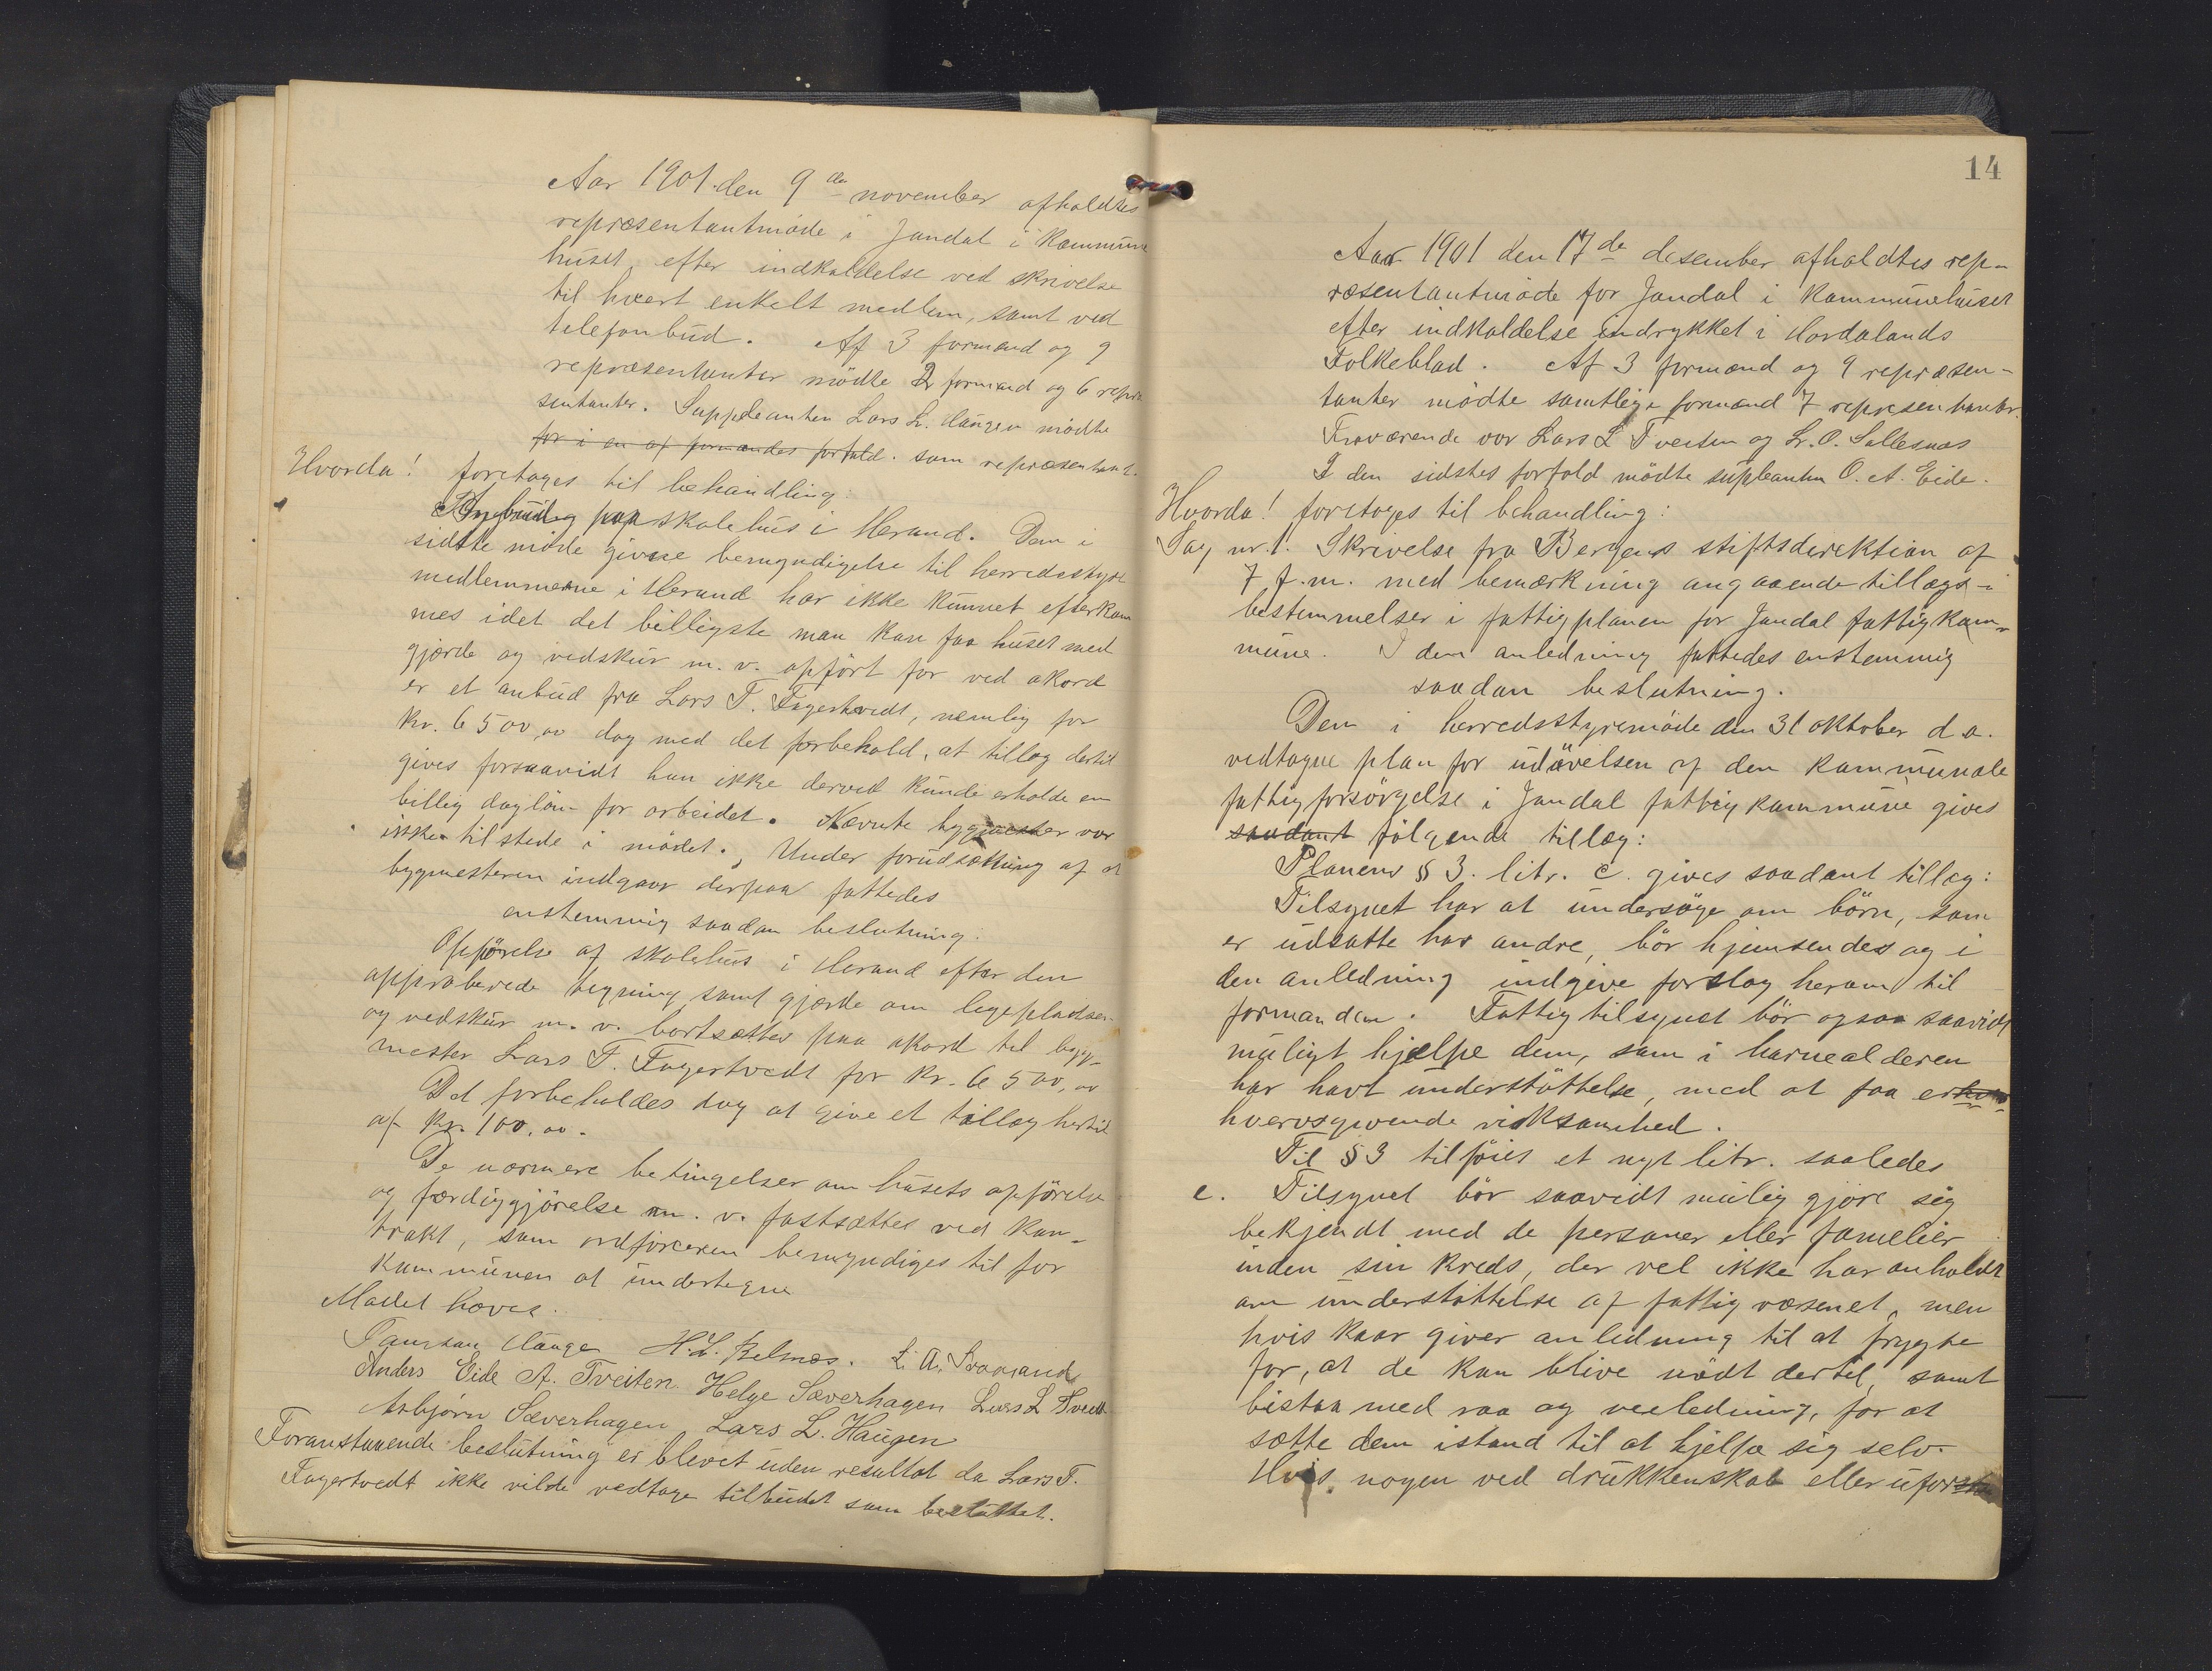 Aar 1901 den 9de november afholdtes
repræsentantmøde i Jondal i Kommune
huset, efter indkaldelse ved skrivelse
til hvert enkelt medlem, samt ved
telefonbud. Af 3 formænd og 9
repræsentanter mødte 2 formænd og 6 repræ
sentanter. Suppleanten Lars L. Haugen mødte
for i en af formændes forfald. som repræsentant.
Hvorda! foretages til behandling:
paa skolehus i Herand. Den i
sidste møde givne bemyndigelse til herredsstyre
medlemmerne i Herand har ikke kunnet efterkom
mes idet det billigste man kan faa huset med
gjærde og vedskur m. v. opført for ved akord
er et anbud fra Lars T. Fagertvedt, nemlig for
kr. 6500,00 dog med det forbehold, at tillæg dertil
gives forsaavidt han ikke derved kunde erholde en
billig dagløn for arbeidet. Nævnte bygmester var
ikke tilstede i mødet. Under forudsætning af at
bygmesteren indgaar derpaa fattedes
enstemmig saadan beslutning:
Opførelse af skolehus i Herand efter den
approberede tegning samt gjærde om legepladsen
og vedskur m. v. bortsættes paa akord til byg-
mester Lars T. Fagertvedt for kr. 6500,00
Det forbeholdes dog at give et tillæg hertil
af kr. 100,00.
De nærmere betingelser om husets opførelse
og færdiggjørelse m. v. fastsættes ved kon-
trakt, som ordføreren bemyndiges til for
kommunen at undertegne
Mødet hæves.
Hauge H. L. Belsnes. L. A.
Anders Eide A. Tveiten. Helge Sæverhagen Lars L Tveit
Asbjørn Sæverhagen Lars L. Haugen
Foranstaaende beslutning er blevet uden resultat da Lars T.
Fagertvedt ikke vilde vedtage tilbudet som besluttet.
14
Aar 1901 den 17de desember afholdtes rep-
ræsentantmøde for Jondal i Kommunehuset
efter indkaldelse indrykket i Hordalands
Folkeblad. Af 3 formænd og 9 repræsen-
tanter mødte samtlige formænd 7 representanter.
Fraværende var Lars L Tveiten og Lr. O. Sallesnæs
I den sidstes forfald mødte supleanten O. A. Eide.
Hvorda! foretages til behandling:
Sag nr. 1. Skrivelse fra Bergens stiftsdirektion af
7 f.m. med bemærkning angaaende tillægs-
bestemmelser i fattigplanen for Jondal fattigkom-
mune. I den anledning fattedes enstemmig
saadan beslutning.
Den i herredsstyremøde den 31 oktober d.a.
vedtagne plan for udøvelsen af den kommunale
fattigforsørgelse i Jondal fattigkommune gives
saadant følgende tillæg:
Planens § 3. litr. c. gives saadant tillæg:
Tilsynet har at undersøge om børn, som
er udsatte hos andre, bør hjemsendes og i
den anledning indgive forslag herom til
formanden. Fattigtilsynet bør ogsaa saavidt
muligt hjælpe dem, som i barnealderen
har havt understøttelse, med at faa er
hvervsgivende virksomhed.
Til § 3 tilføies et nyt litr. saaledes
e. Tilsynet bør saavidt mulig gjøre sig
bekjendt med de personer eller famelier
inden sin kreds, der vel ikke har anholdt
om understøttelse af fattigvæsenet, men
hvis kaar giver anledning til at frygte
for, at de kan blive nødt dertil, samt
bistaa med raa og veiledning, for at
sætte dem istand til at hjelpe sig selv.
Hvis nogen ved drukkenskab eller